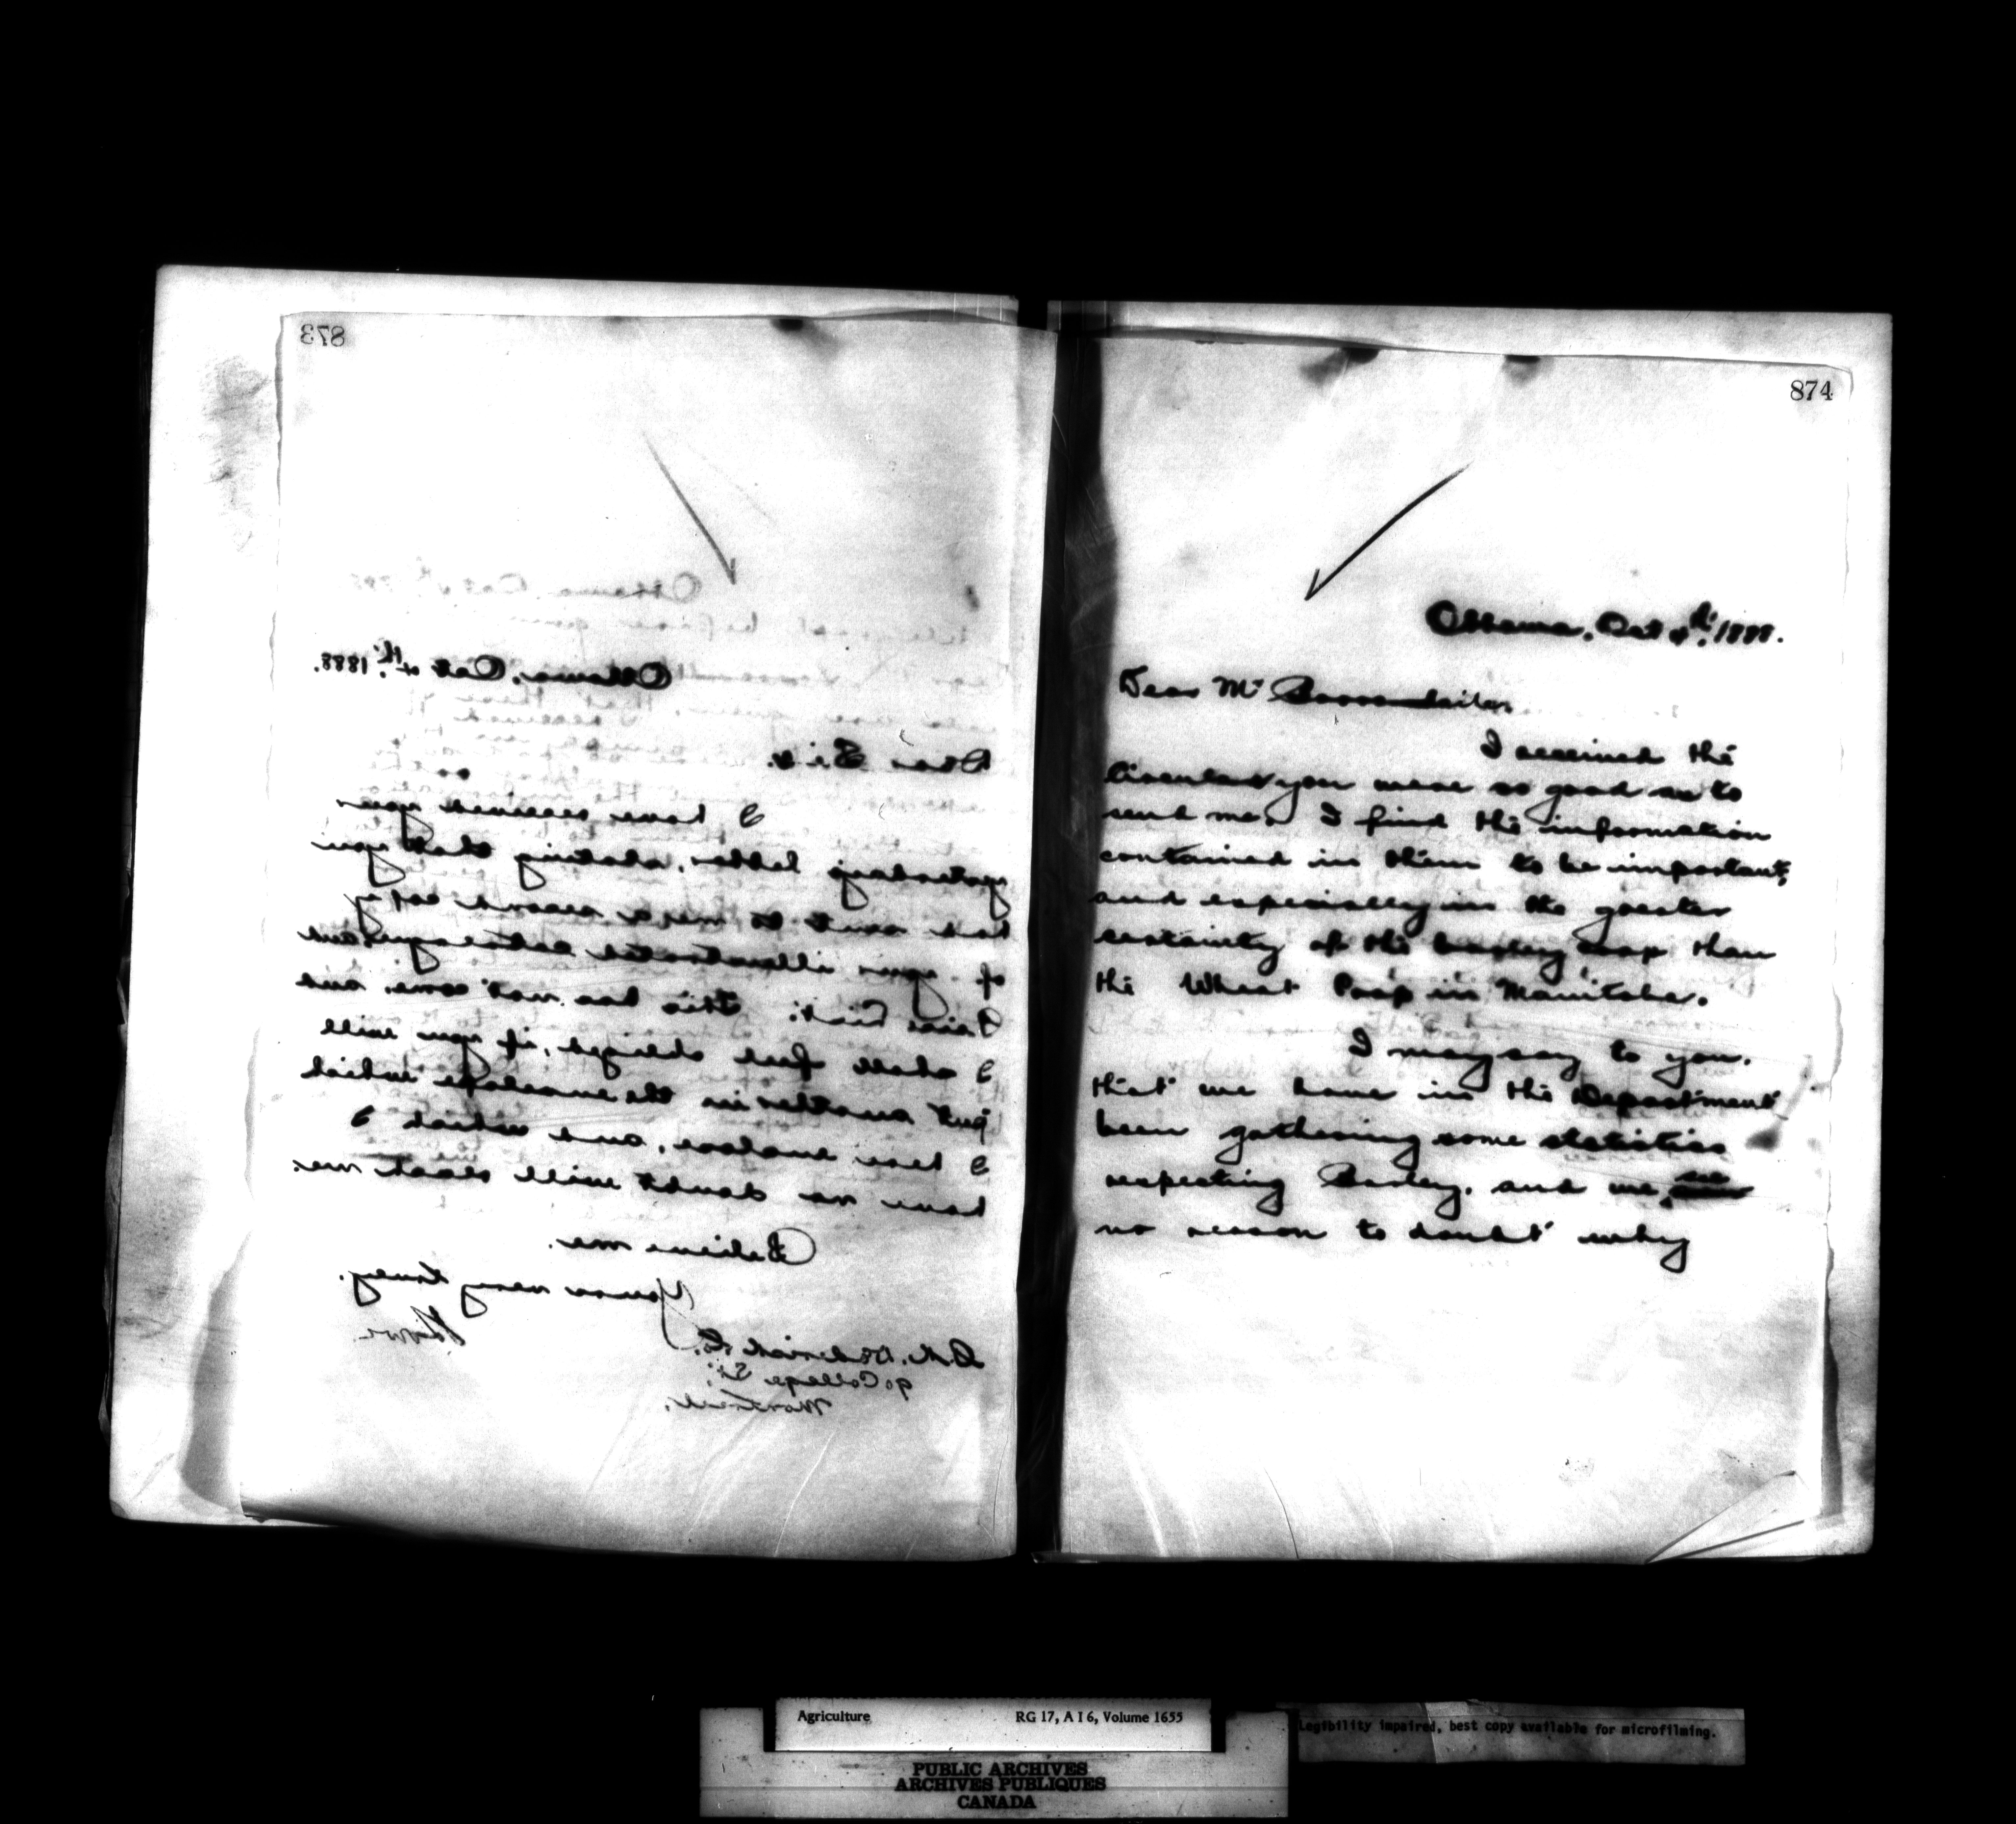 873
Ottawa, Oct 4th. 1888.
Dear Sir,
I have received your
yesterday's letter, stating that you
had sent to me a second copy
of your illustrated catalogue and
Price List. This has not come, and
I shall feel obliged, if you will
put another in the envelope which
I here enclose, and which I
have no doubt will reach me.
Believe me.
Yours very truly.
Dederick Co.
90 College St.
Montreal.
874
Ottawa, Oct 4th. 1888.
Dear Mr
I received the
Circulars you were so good as to
send me. I find the information
contained in them to be important,
and especially in the greater
certainty of the barley crop than
the Wheat Crop in Manitoba.
I may say to you,
that we have in the Department
been gathering some statistics
respecting Barley, and we see
no reason to doubt why
Agriculture RG 17, A I 6, Volume 1655
Legibility impaired, best copy available for microfilming.
PUBLIC ARCHIVES
ARCHIVES PUBLIQUES
CANADA